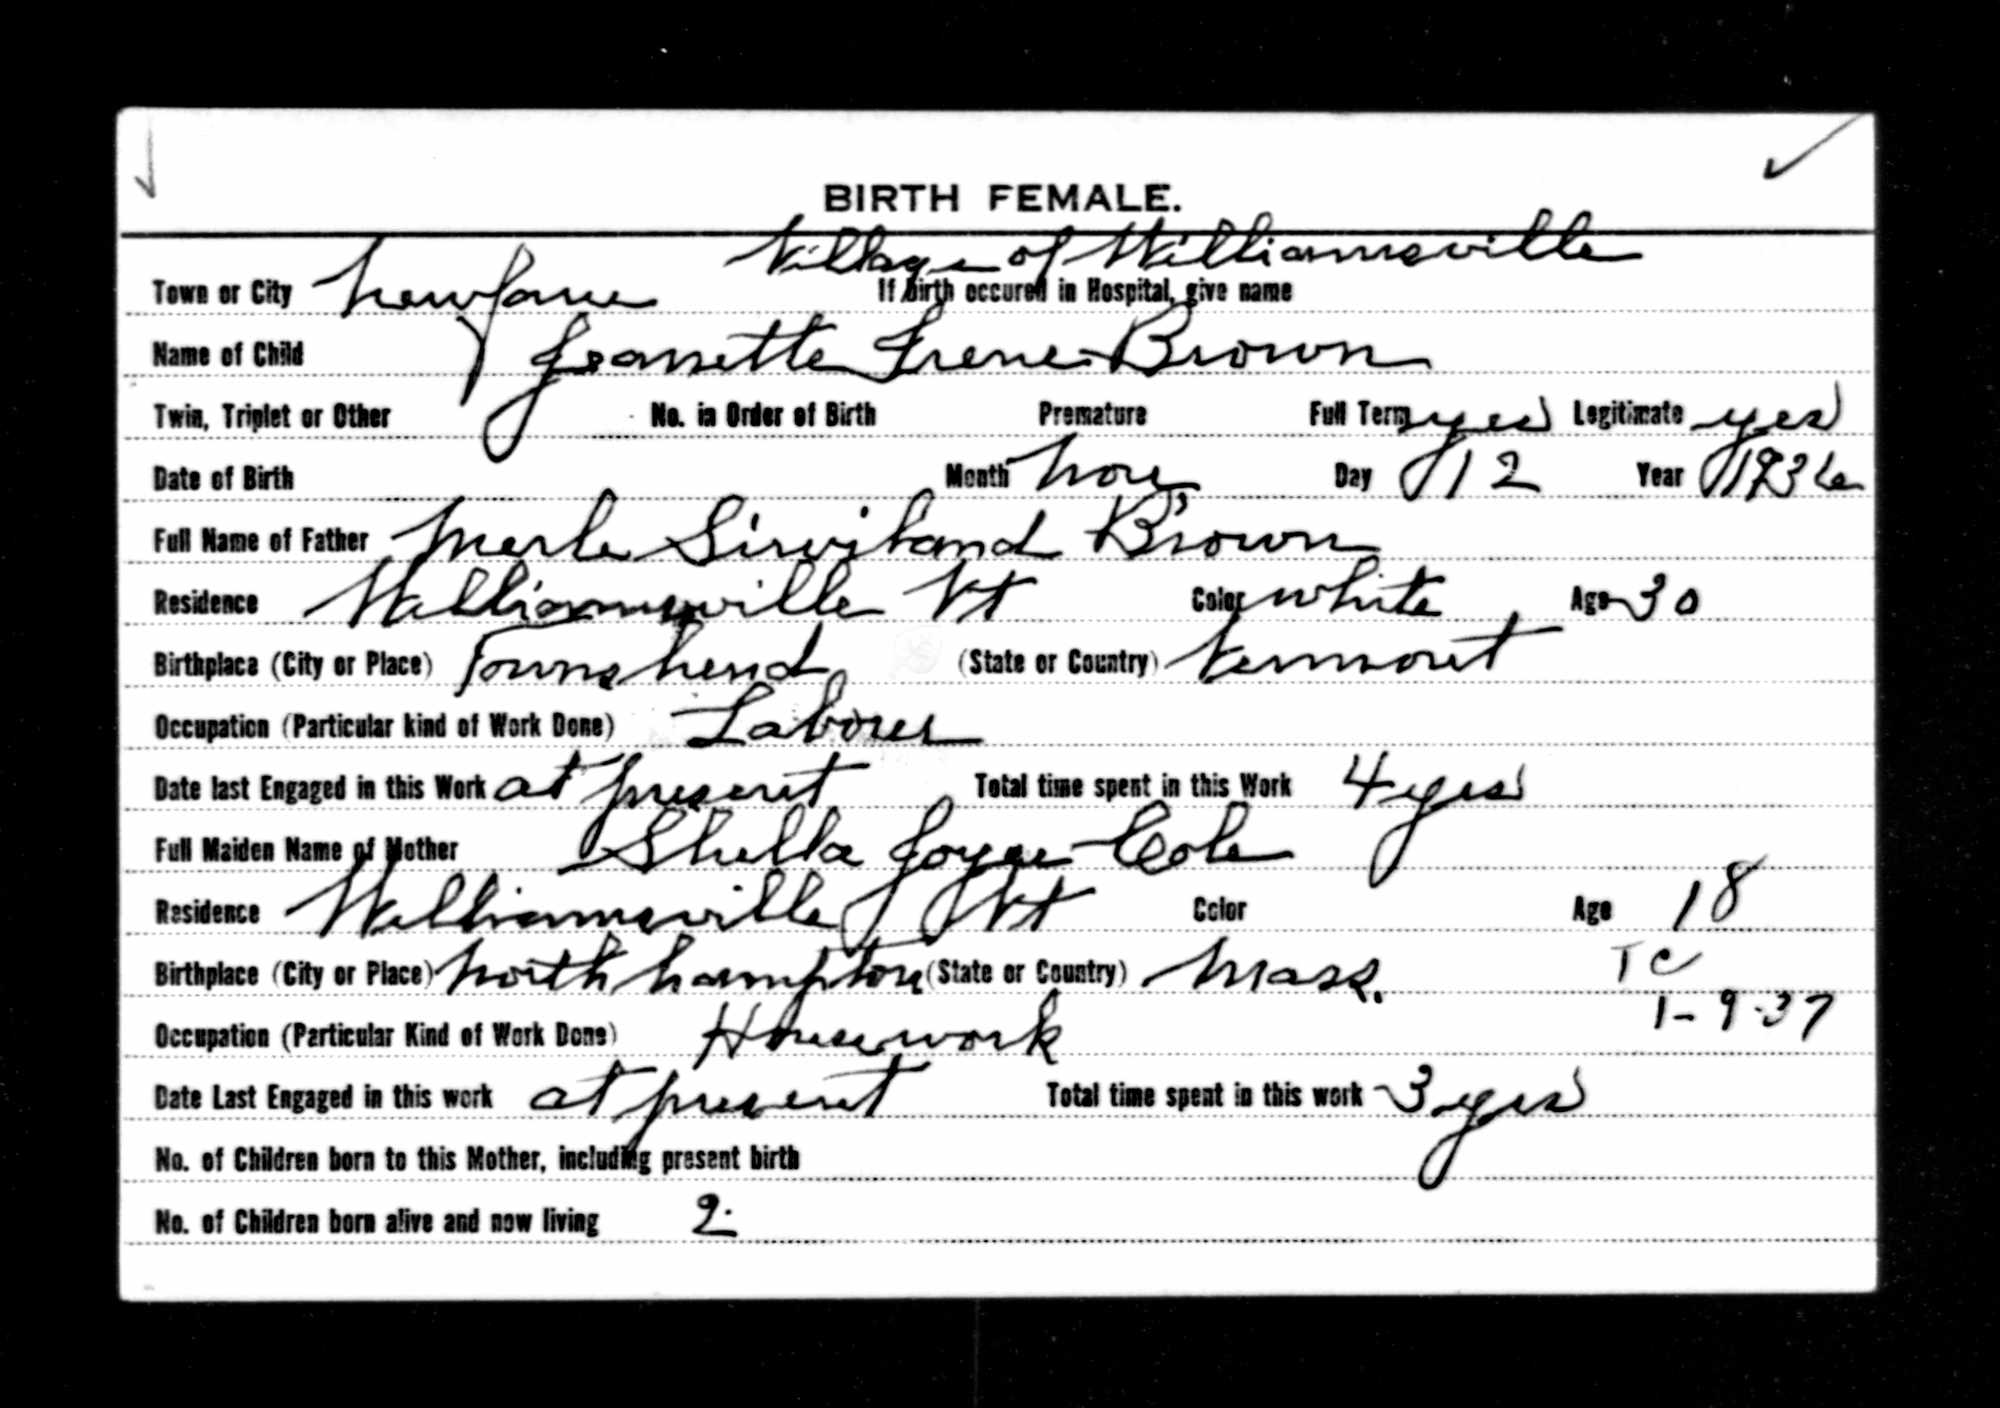 BIRTH FEMALE.
Village of Williamsville
Town or City Newfane If birth occured in Hospital, give name
Name of Child Jeanette Irene Brown
Twin, Triplet or Other No. in Order of Birth Premature Full Term yes Legitimate yes
Date of Birth Month Nov Day 12 Year 1936
Full Name of Father Merle Brown
Residence Williamsville Vt Color white Age 30
Birthplace (City or Place) Townshend (State or Country) Vermont
Occupation (Particular kind of Work Done) Laborer
Date last Engaged in this Work at present Total time spent in this Work 4 yrs
Full Maiden Name of Mother Shella Joyce Cole
Residence Williamsville Vt Color Age 18
Birthplace (City or Place) North hampton (State or Country) Mass. TC
1-9-37
Occupation (Particular Kind of Work Done) Housework
Date Last Engaged in this work at present Total time spent in this work 3 yrs
No. of Children born to this Mother, including present birth
No. of Children born alive and now living 2